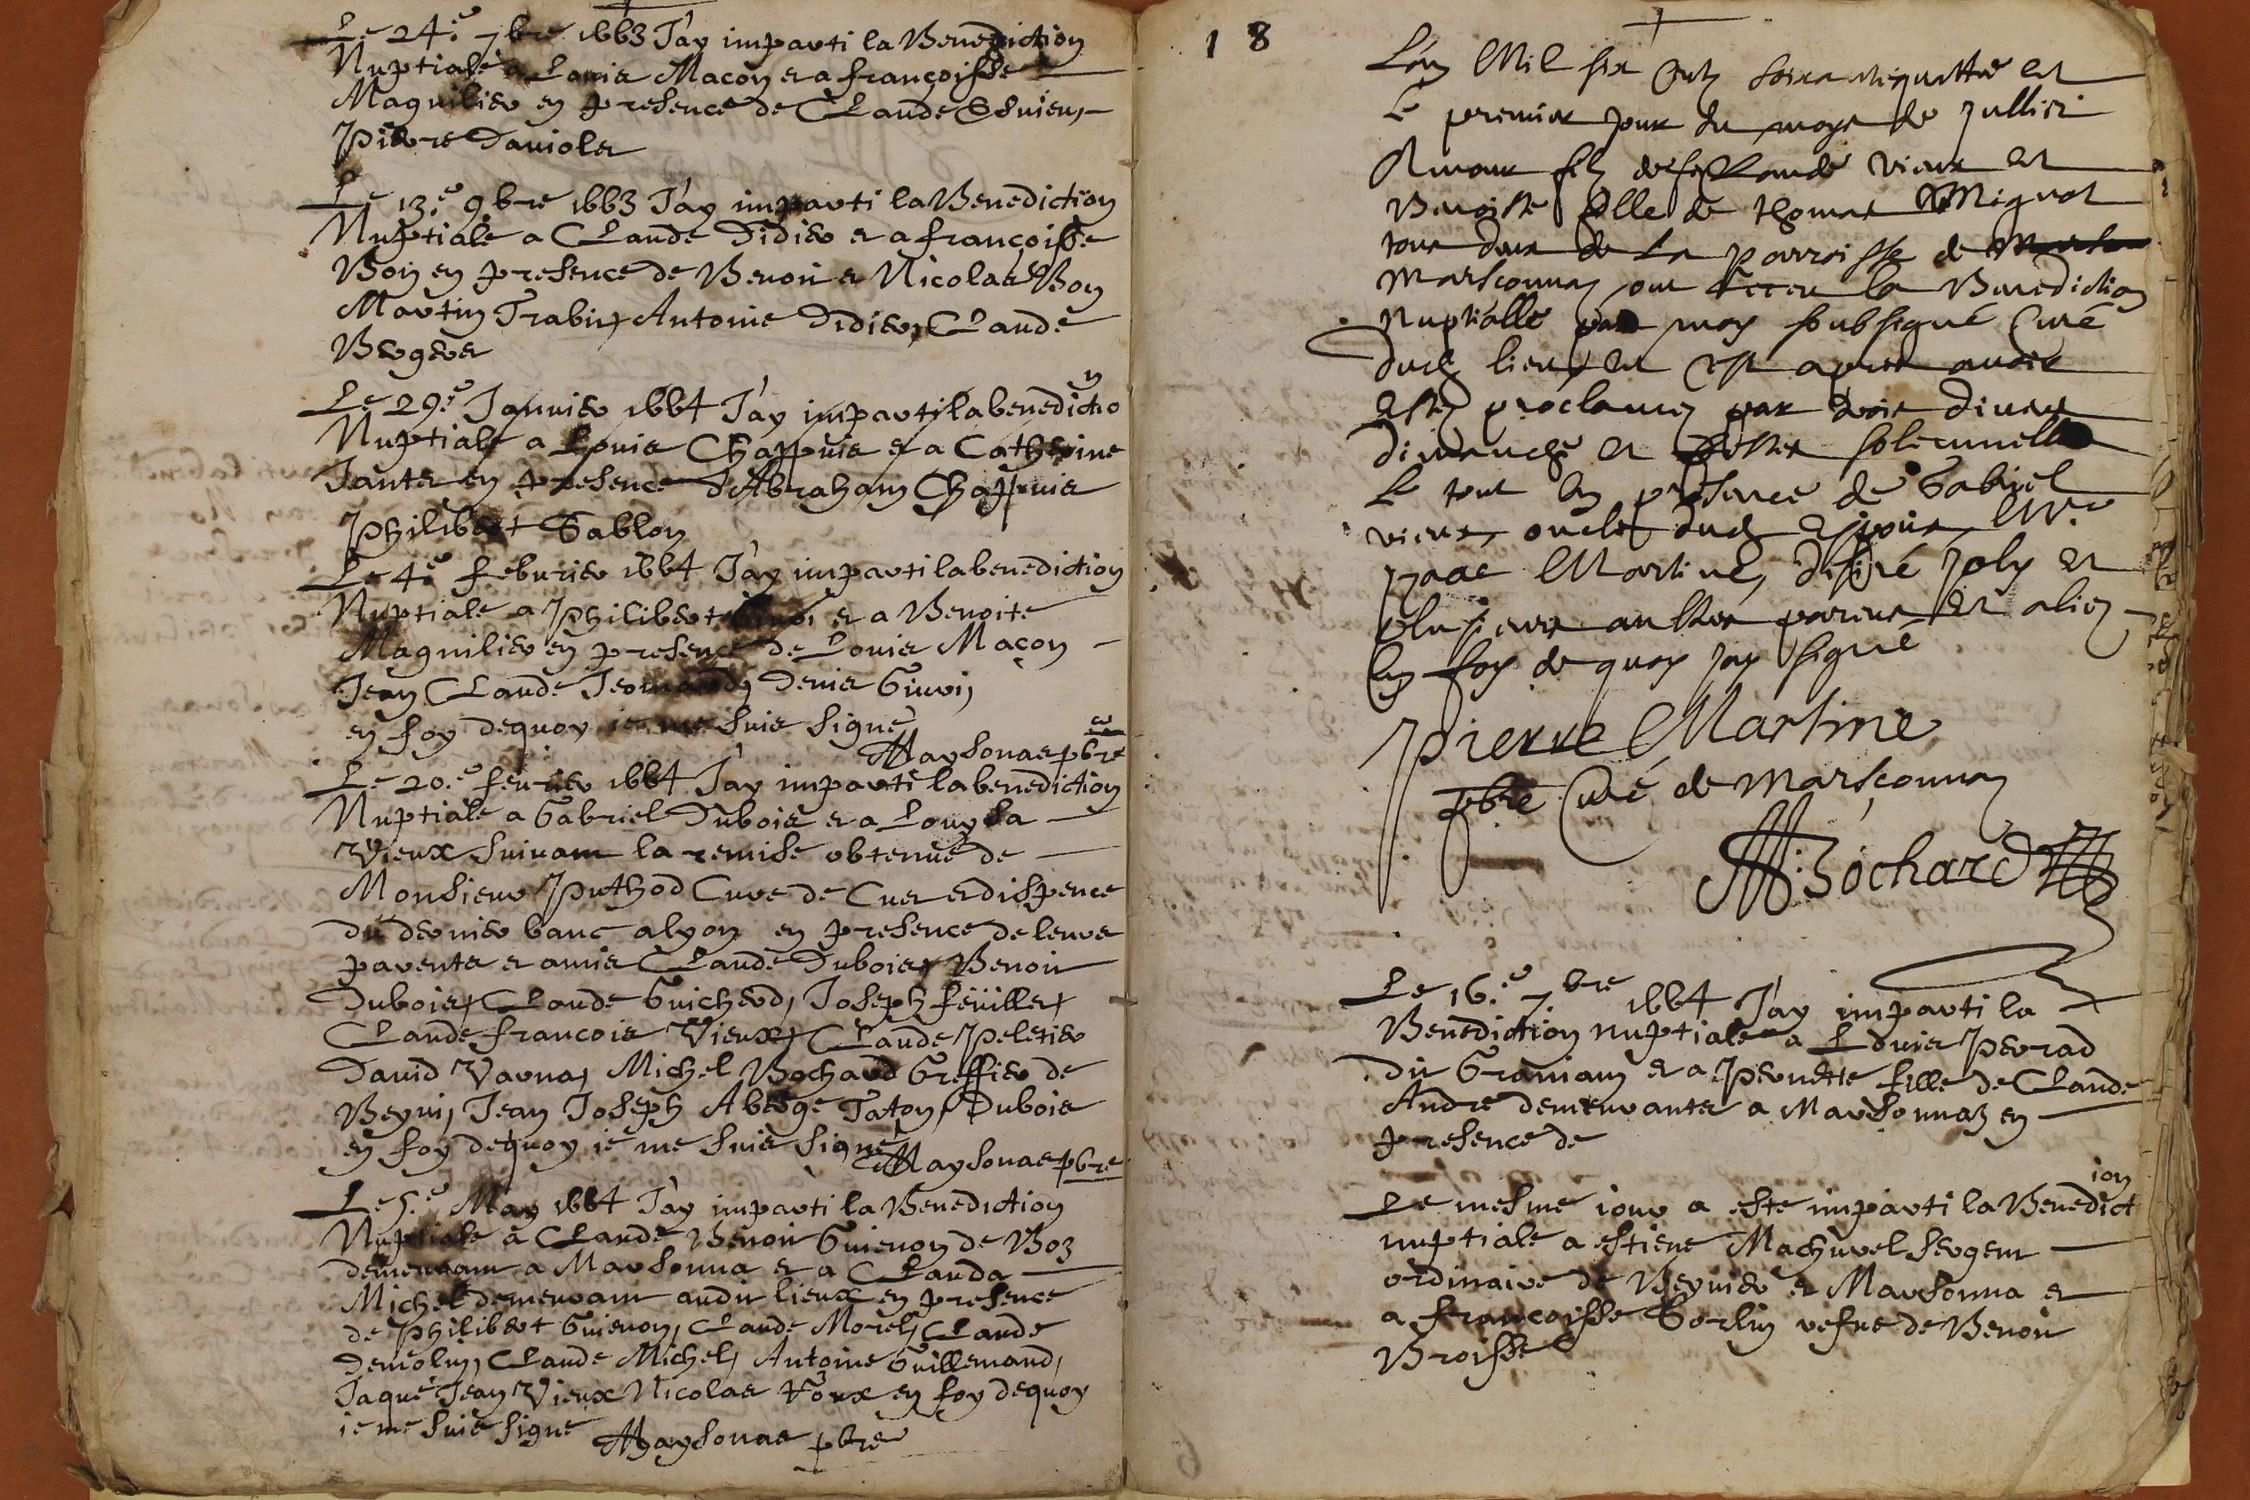 Le 24.e 7bre 1663 J'ay imparti la Benediction
Nuptiale a Louis Maçon et a françoisse
Magnilier en presence de Claude
Pierre Daujolet
Le 13.e 9bre 1663 J'ay imparti la Benediction
Nuptiale a Claude Didier et a françoisse
Boin en presence de Benoit et Nicolas Bon
Martin Trabin, Antoine Didier, Claude
Berger
Le 29.e Januier 1664 J'ay imparti la benedictio n
Nuptiale a Louis Chappuis et a Catherine
Jantet en presence d'Abraham Chappuis
Philibert Gablon
Le 4.e feburier 1664 J'ay imparti la benediction
Nuptiale a Philibert et a Benoite
Magnilier en presence de Louis Maçon
Jean Claude Denis
en foy dequoy ie me suis signé
Maysonas pbre
Le 20.e feurier 1664 J'ay imparti la benediction
Nuptiale a Gabriel Dubois et a Louysa
Vieux suiuant la remise obtenue de
Monsieur Puthod Curé de Cuet et dispence
du dernier banc a lyon en presence de leurs
parents et amis Claude Dubois, Benoit
Dubois, Claude Guicherd, Joseph feüillet,
Claude francois Vieux, Claude Peletier
Dauid Varna, Michel Bochard Greffier de
Beyni, Jean Joseph Taton, Dubois
en foy dequoy ie me suis signé
Maysonas pbre
Le 5.e May 1664 J'ay imparti la Benediction
Nuptiale a Claude Benoit Guienon de Boz
demeurant a Marsonna et a Clauda
Michel demeurant audit lieux en presence
de Philibert Guienon, Claude Morel, Claude
Claude Michel, Antoine Guillemand,
Jaque Jean Vieux Nicolas en foy dequoy
ie me suis signé Maysonas pbre
18
L'an Mil six Cents soixante quattre et
le premier jour du moys de Jullier
Amour filz de feu Claude Vieux et
Benoiste fille de thomas Mignot
tous deux de la parroisse de
Marsconnay ont receu la Benediction
Nuptialle par moy soubsigné Curé
dud. lieu, et c'est apres auoir
estez proclamez par trois diuers
dimanche et festes solemnelles
le tout en presence de Gabriel
vieux, oncle dud. espoux, Mre
yzaac Martine, desiré Joly et
plusieurs aultres parens et aliez
En foy de quoy jay signé
Pierre Martine
pbre Curé de Marsconnay
M: Bochard
Le 16.e 7.bre 1664 J'ay imparti la
Benediction nuptiale a Louis Perrad
dit Graniam et a Pernette fille de Claude
André demeurants a Marsonnaz en
presence de
Le mesme iour a esté imparti la Benedict ion
nuptiale a estiene Machurel sergent
ordinaire de Beynier et Marsonna et
a francoisse Gorlin vefue de Benoit
Broisse